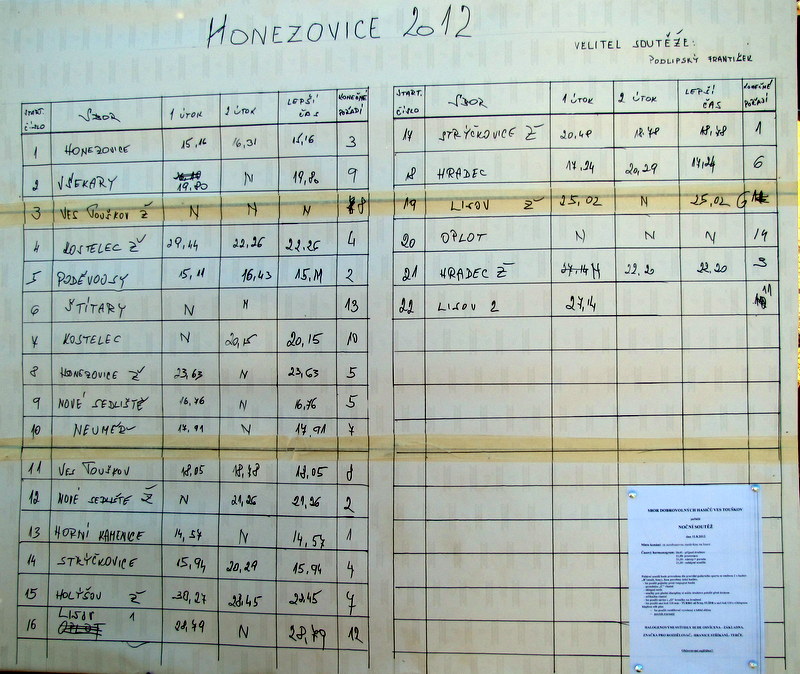 HONEZOVICE 2012
VELITEL SOUTĚŽE:
PODLIPSKÝ FRANTIŠEK
START. ČÍSLO SBOR 1 ÚTOK 2 ÚTOK LEPŠÍ ČAS KONEČNÉ POŘADÍ
1 HONEZOVICE 15,16 16,31 15,16 3
2 VŠEKARY 19,80 N 19,80 9
3 VES TOUŠKOV Ž N N N 8
4 KOSTELEC Ž 29,44 22,26 22,26 4
5 PODĚVOUSY 15,11 16,43 15,11 2
6 ŠTÍTARY N N 13
7 KOSTELEC N 20,15 20,15 10
8 HONEZOVICE Ž 23,63 N 23,63 5
9 NOVÉ SEDLIŠTĚ 16,76 N 16,76 5
10 NEUMĚŘ 17,91 N 17,91 7
11 VES TOUŠKOV 18,05 18,78 18,05 8
12 NOVÉ SEDLIŠTĚ Ž N 21,26 21,26 2
13 HORNÍ KAMENICE 14,57 N 14,57 1
14 STRÝČKOVICE 15,94 20,29 15,94 4
15 HOLÝŠOV Ž 30,27 28,45 28,45 7
16 LISOV 1 28,79 N 28,79 12
START. ČÍSLO SBOR 1 ÚTOK 2 ÚTOK LEPŠÍ ČAS KONEČNÉ POŘADÍ
17 STRÝČKOVICE Ž 20,48 18,78 18,78 1
18 HRADEC 17,24 20,29 17,24 6
19 LISOV Ž 25,02 N 25,02 6
20 OPLOT N N N 14
21 HRADEC Ž 27,14 N 22,20 22,20 3
22 LISOV 2 27,14 11
SBOR DOBROVOLNÝCH HASIČŮ VES TOUŠKOV
pořádá
NOČNÍ SOUTĚŽ